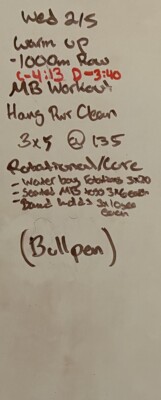 Wed 2/5
Warm up
-1000m Row
C-4:13 D-3:40
MB Workout
Hang Pwr Clean
3x5 @ 135
Rotational/Core
- Water bag rotations 3x20
- Seated MB toss 3x6 each
- Band holds 3x10sec
each
(Bullpen)